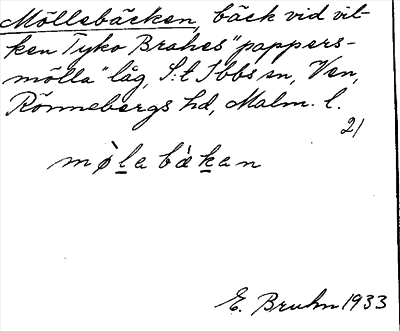 Möllebäcken, bäck vid vil-
ken Tyko Brahes "pappers-
mölla" låg, S:t Ibbs sn, Ven,
Rönnebergs hd, Malm. l.
2/
mø̀l̲a bæ̀k̲an
E. Bruhn 1933